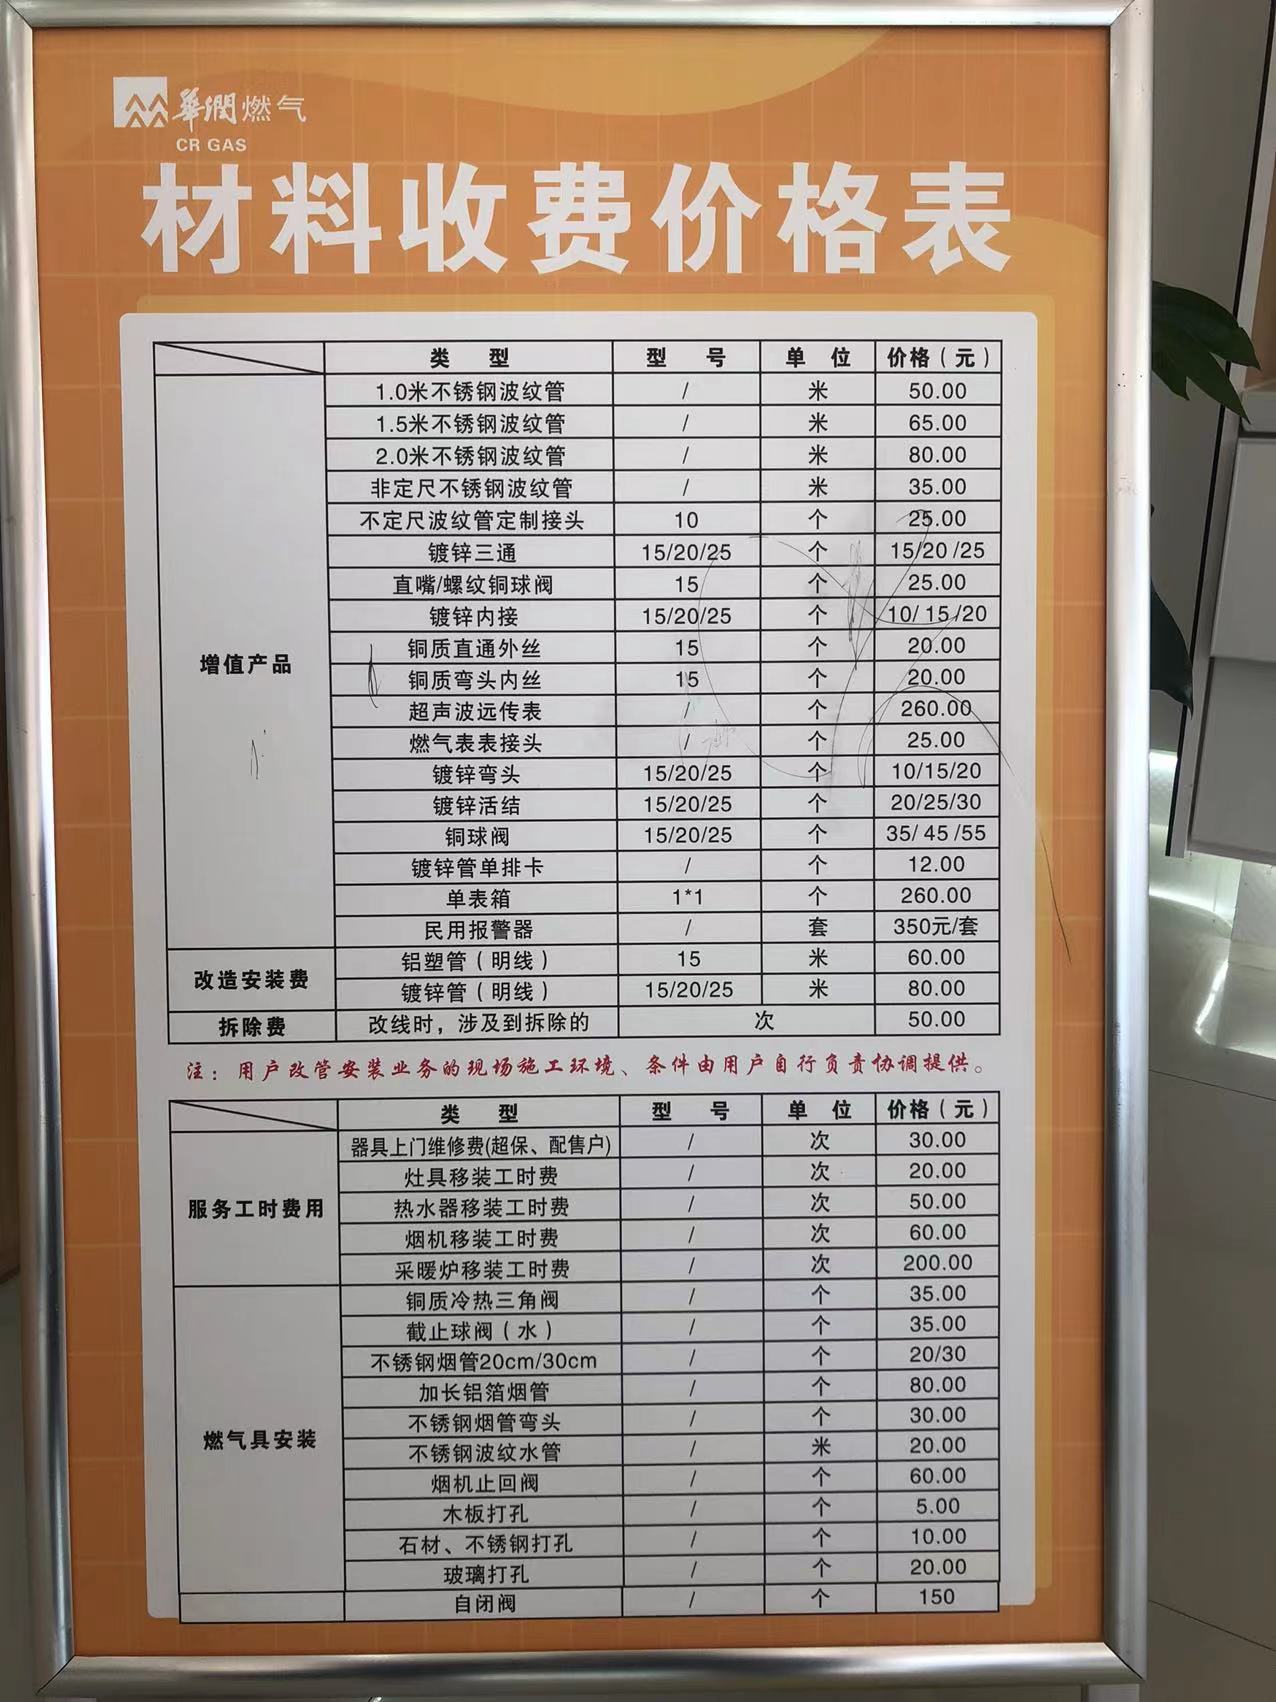 華潤燃气
CR GAS
材料收费价格表
类 型 型 号 单 位 价格（元）
增值产品
1.0米不锈钢波纹管 / 米 50.00
1.5米不锈钢波纹管 / 米 65.00
2.0米不锈钢波纹管 / 米 80.00
非定尺不锈钢波纹管 / 米 35.00
不定尺波纹管定制接头 10 个 25.00
镀锌三通 15/20/25 个 15/20 /25
直嘴/螺纹铜球阀 15 个 25.00
镀锌内接 15/20/25 个 10/ 15 /20
铜质直通外丝 15 个 20.00
铜质弯头内丝 15 个 20.00
超声波远传表 / 个 260.00
燃气表表接头 / 个 25.00
镀锌弯头 15/20/25 个 10/15/20
镀锌活结 15/20/25 个 20/25/30
铜球阀 15/20/25 个 35/ 45 /55
镀锌管单排卡 / 个 12.00
单表箱 1*1 个 260.00
民用报警器 / 套 350元/套
改造安装费
铝塑管（明线） 15 米 60.00
镀锌管（明线） 15/20/25 米 80.00
拆除费 改线时，涉及到拆除的 次 50.00
注：用户改管安装业务的现场施工环境、条件由用户自行负责协调提供。
类 型 型 号 单 位 价格（元）
服务工时费用
器具上门维修费(超保、配售户) / 次 30.00
灶具移装工时费 / 次 20.00
热水器移装工时费 / 次 50.00
烟机移装工时费 / 次 60.00
采暖炉移装工时费 / 次 200.00
燃气具安装
铜质冷热三角阀 / 个 35.00
截止球阀（水） / 个 35.00
不锈钢烟管20cm/30cm / 个 20/30
加长铝箔烟管 / 个 80.00
不锈钢烟管弯头 / 个 30.00
不锈钢波纹水管 / 米 20.00
烟机止回阀 / 个 60.00
木板打孔 / 个 5.00
石材、不锈钢打孔 / 个 10.00
玻璃打孔 / 个 20.00
自闭阀 / 个 150